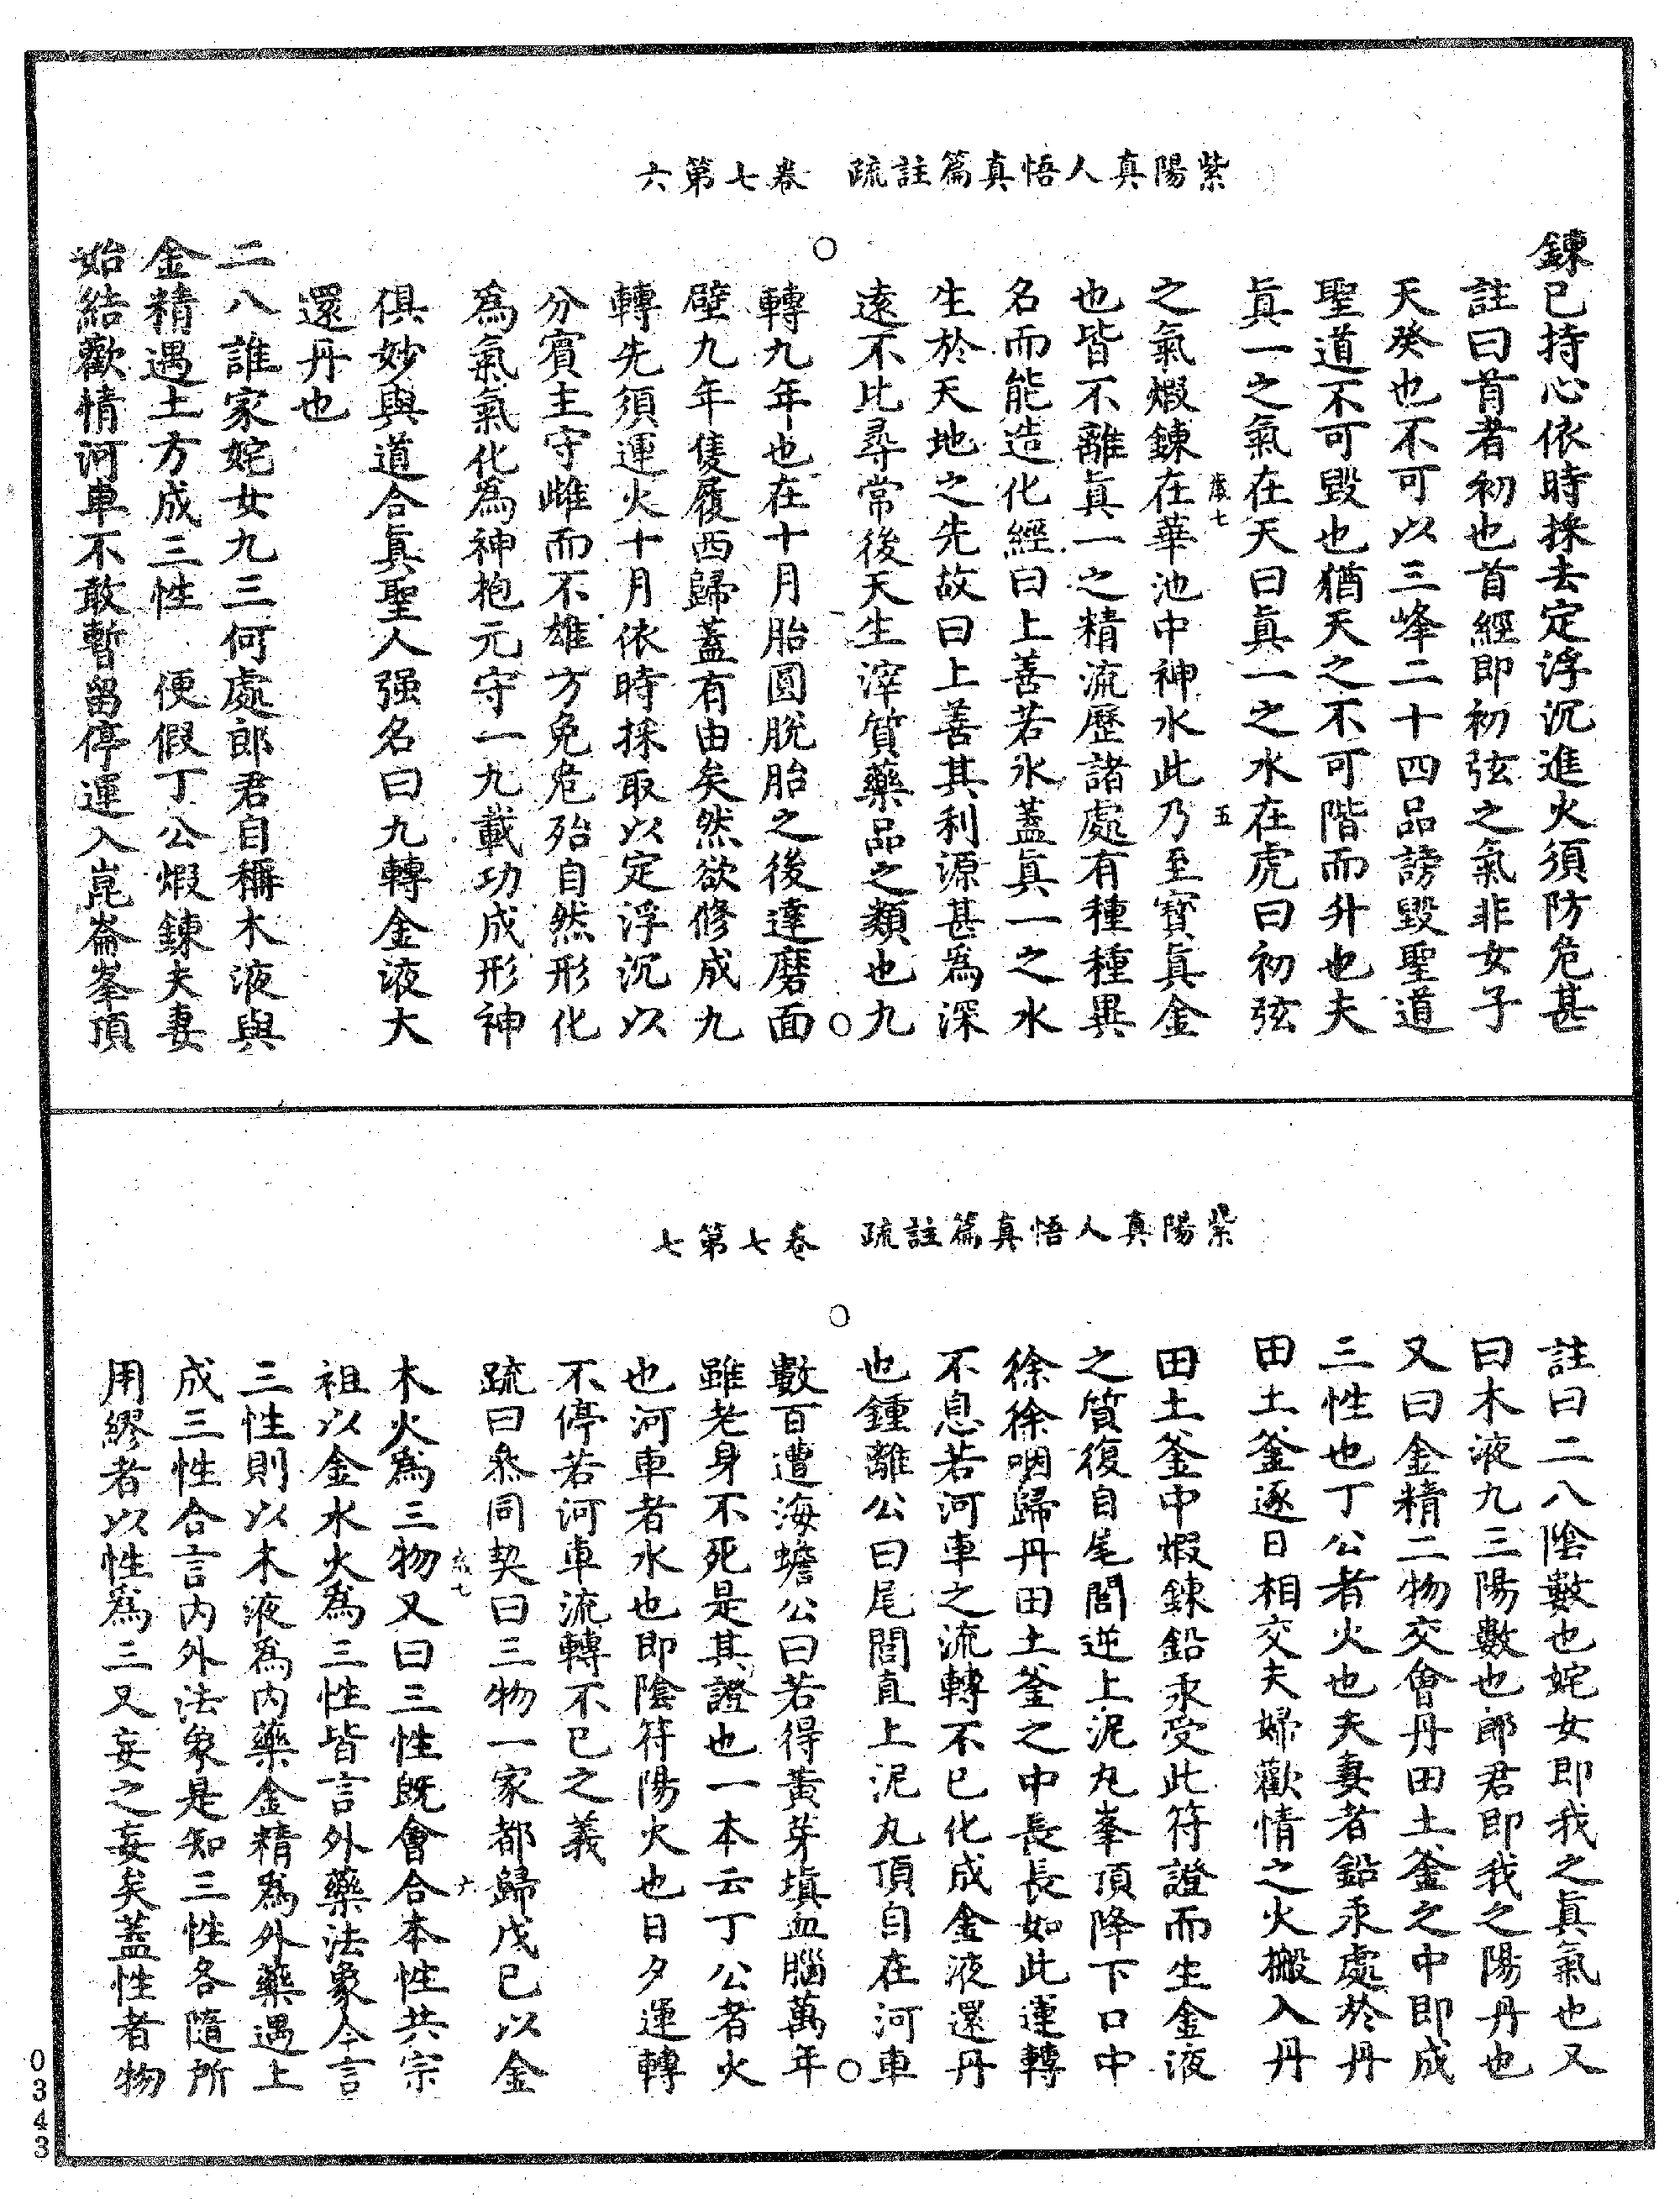 紫陽真人悟真篇註疏　卷七第六
鍊已持心依時採去定浮沉進火須防危甚
註曰首者初也首經即初弦之氣非女子
天癸也不可以三峰二十四品謗毀聖道
聖道不可毀也猶天之不可階而升也夫
真一之氣在天曰真一之水在虎曰初弦
歲七　五
之氣煆鍊在華池中神水此乃至寶真金
也皆不離真一之精流歷諸處有種種異
名而能造化經曰上善若水蓋真一之水
生於天地之先故曰上善其利源甚為深
遠不比尋常後天生滓質藥品之類也九
轉九年也在十月胎圓脫胎之後達磨面
壁九年隻履西歸蓋有由矣然欲修成九
轉先須運火十月依時採取以定浮沉以
分賓主守雌而不雄方免危殆自然形化
為氣氣化為神抱元守一九載功成形神
俱妙與道合真聖人强名曰九轉金液大
還丹也
二八誰家姹女九三何處郎君自稱木液與
金精遇土方成三性　便假丁公煆鍊夫妻
始結歡情河車不敢暫留停運入崑崙峯頂
紫陽真人悟真篇註疏　卷七第七
註曰二八陰數也姹女即我之真氣也又
曰木液九三陽數也郎君即我之陽丹也
又曰金精二物交會丹田土釜之中即成
三性也丁公者火也夫妻者鉛汞處於丹
田土釜逐日相交夫婦歡情之火搬入丹
田土釜中煆鍊鉛汞受此符證而生金液
之質復自尾閭逆上泥丸峯頂降下口中
徐徐咽歸丹田土釜之中長長如此運轉
不息若河車之流轉不已化成金液還丹
也鍾離公曰尾閭直上泥丸頂自在河車
數百遭海蟾公曰若得黃芽塡血腦萬年
雖老身不死是其證也一本云丁公者火
也河車者水也即陰符陽火也日夕運轉
不停若河車流轉不已之義
疏曰叅同契曰三物一家都歸戊己以金
歲七　六
木火為三物又曰三性旣會合本性共宗
祖以金水火為三性皆言外藥法象今言
三性則以木液為内藥金精為外藥遇上
成三性合言内外法象是知三性各隨所
用繆者以性為三又妄之妄矣蓋性者物
0343